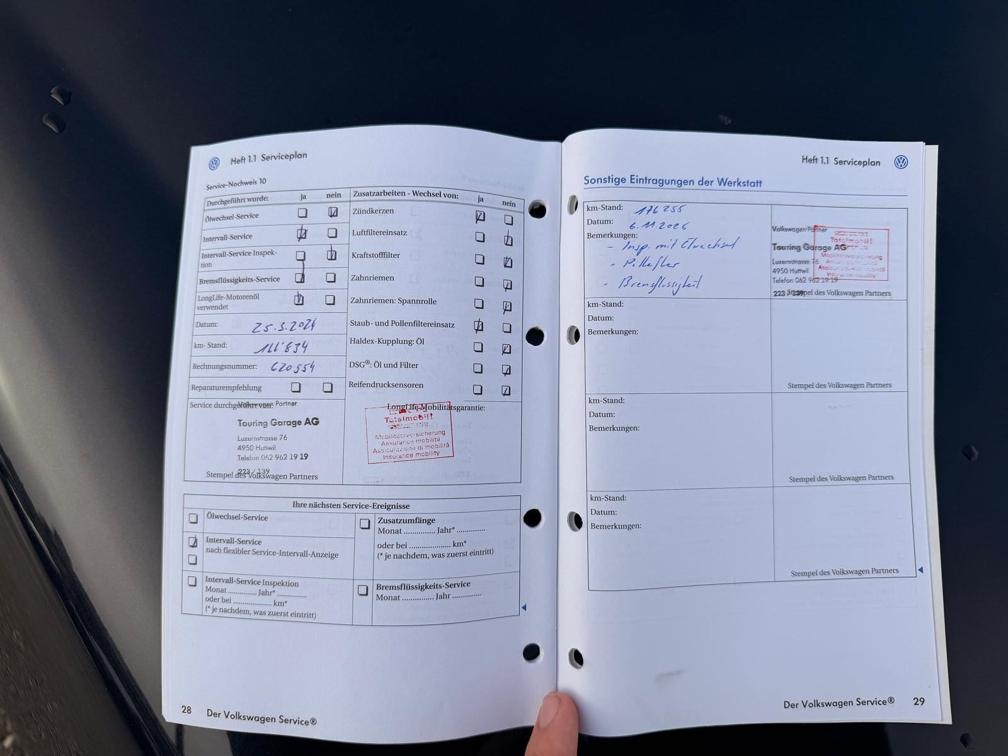 Heft 1.1 Serviceplan
Service-Nachweis 10
Durchgeführt wurde: ja nein
Ölwechsel-Service
Intervall-Service
Intervall-Service Inspek-
tion
Bremsflüssigkeits-Service
LongLife-Motorenöl
verwendet
Datum: 25.3.2024
km- Stand: 166'834
Rechnungsnummer: 620554
Reparaturempfehlung
Service durchgeführt von:
Touring Garage AG
Luzernstrasse 76
4950 Huttwil
Telefon 062 962 19 19
Stempel des Volkswagen Partners
Zusatzarbeiten - Wechsel von: ja nein
Zündkerzen
Luftfiltereinsatz
Kraftstofffilter
Zahnriemen
Zahnriemen: Spannrolle
Staub- und Pollenfiltereinsatz
Haldex-Kupplung: Öl
DSG®: Öl und Filter
Reifendrucksensoren
LongLife-Mobilitätsgarantie:
Totalmobil!
Mobilitätsversicherung
Assurance mobilité
Assicurazione di mobilità
Insurance mobility
Ihre nächsten Service-Ereignisse
Ölwechsel-Service
Intervall-Service
nach flexibler Service-Intervall-Anzeige
Intervall-Service Inspektion
Monat ............ Jahr* ............
oder bei ................ km*
(* je nachdem, was zuerst eintritt)
Zusatzumfänge
Monat ............ Jahr* ............
oder bei ................ km*
(* je nachdem, was zuerst eintritt)
Bremsflüssigkeits-Service
Monat ............ Jahr ............
28 Der Volkswagen Service®
Heft 1.1 Serviceplan
Sonstige Eintragungen der Werkstatt
km-Stand: 176 255
Datum:
Bemerkungen:
- Insp. mit Ölwechsel
- Bremsflüssigkeit
Volkswagen Partner
Touring Garage AG
Luzernstrasse 76
4950 Huttwil
Telefon 062 962 19 19
Totalmobil!
Stempel des Volkswagen Partners
km-Stand:
Datum:
Bemerkungen:
Stempel des Volkswagen Partners
km-Stand:
Datum:
Bemerkungen:
Stempel des Volkswagen Partners
km-Stand:
Datum:
Bemerkungen:
Stempel des Volkswagen Partners
Der Volkswagen Service® 29